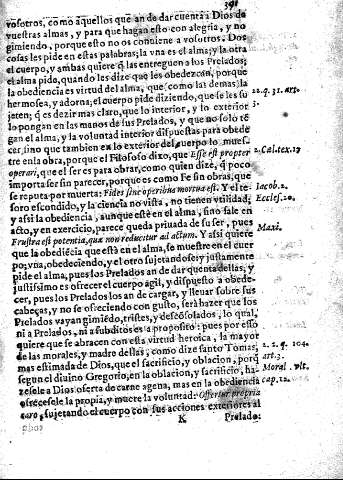 391
vosotros, como aquellos que an de dar cuenta a Dios de
vuestras almas, y para que hagan esto con alegria, y no
gimiendo, porque esto no os conviene a vosotros. Dos
cosas les pide en estas palabras; la vna es el alma; y la otra
el cuerpo, y ambas quiere q̃ las entreguen a los Prelados;
el alma pide, quando les dize que les obedezcan, porque
la obediencia es virtud del alma, que (como las demas) la
hermosea, y adorna; el cuerpo pide diziendo, que se les su
jeten; q̃ es dezir mas claro, que lo interior, y lo exterior
lo pongan en las manos de sus Prelados, y que no solo tẽ
gan el alma, y la voluntad interior dispuestas para obede
cer, sino que tambien en lo exterior del cuerpo lo mues
tre en la obra, porque el Filosofo dixo, que Esse est propter
operari, que el ser es para obrar, como quien dize, q̃ poco
importa ser sin parecer, porque es como Fe sin obras, que
se reputa por muerta: Fides sine operibus mortua est. Y el te-
soro escondido, y la ciencia no vista, no tienen vtilidad,
y assi la obediencia, aunque estè en el alma, sino sale en
acto, y en exercicio, parece queda priuada de su ser, pues
Frustra est potentia, quæ non reducitur ad actum. Y assi quiere
que la obediẽcia que està en el alma, se muestre en el cuer
po; vna, obedeciendo, y el otro sujetandose; y justamente
pide el alma, pues los Prelados an de dar quenta dellas; y
justissimo es ofrecer el cuerpo agil, y dispuesto a obede-
cer, pues los Prelados los an de cargar, y lleuar sobre sus
cabeças, y no se ofreciendo con gusto, serà bazer que los
Prelados vayan gimiẽdo, tristes, y descõsolados, lo qual,
ni a Prelados, ni a subditos es a proposito: pues por esso
quiere que se abracen con esta virtud heroica, la mayor
de las morales, y madre dellas, como dize santo Tomas,
mas estimada de Dios, que el sacrificio, y oblacion, porq̃
segun el diuino Gregorio, en la oblacion, y sacrificio, ha-
zesele a Dios oferta de carne agena, mas en la obediencia
ofrecesele la propia, y muere la voluntad: Offertur propria
caro, sujetando el cuerpo con sus acciones exteriores al
K Prelado:
2.q. 31. art.
3.
2. Cal. tex. 17
Iacob. 2.
Eccles. 20.
Maxi.
2. 2. q. 104.
art. 3.
Moral. vlt.
cap. 12.